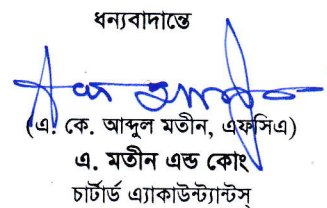 ধন্যবাদান্তে
(এ. কে. আব্দুল মতীন, এফসিএ)
এ. মতীন এন্ড কোং
চার্টার্ড এ্যাকাউন্ট্যান্টস্